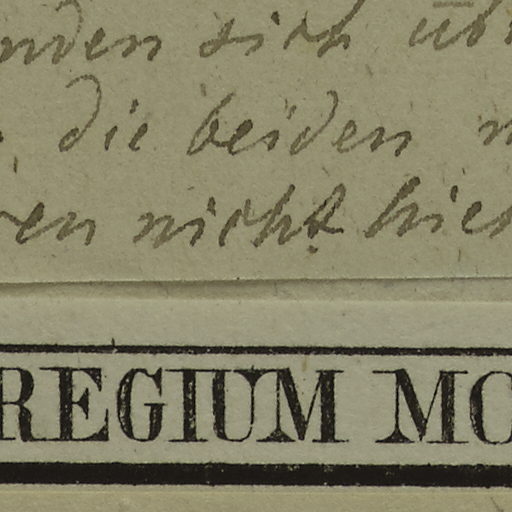 nden sich üb
die beiden
en nicht hier
REGIUM MO